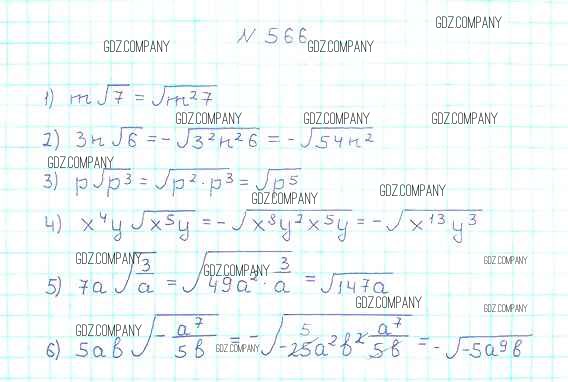 GDZ.COMPANY
N 566
GDZ.COMPANY GDZ.COMPANY
1) m√7 = √m²7
GDZ.COMPANY GDZ.COMPANY GDZ.COMPANY
2) 3n√6 = -√3²n²6 = -√54n²
GDZ.COMPANY
3) p√p³ = √p²·p³ = √p⁵
GDZ.COMPANY GDZ.COMPANY
4) x⁴y√x⁵y = -√x⁸y²x⁵y = -√x¹³y³
GDZ.COMPANY GDZ.COMPANY GDZ.COMPANY
5) 7a√3/a = √49a²·3/a = √147a
GDZ.COMPANY GDZ.COMPANY
GDZ.COMPANY GDZ.COMPANY
6) 5ab√-a⁷/5b = -√-25a²b² 5 a⁷/5b = -√-5a⁹b